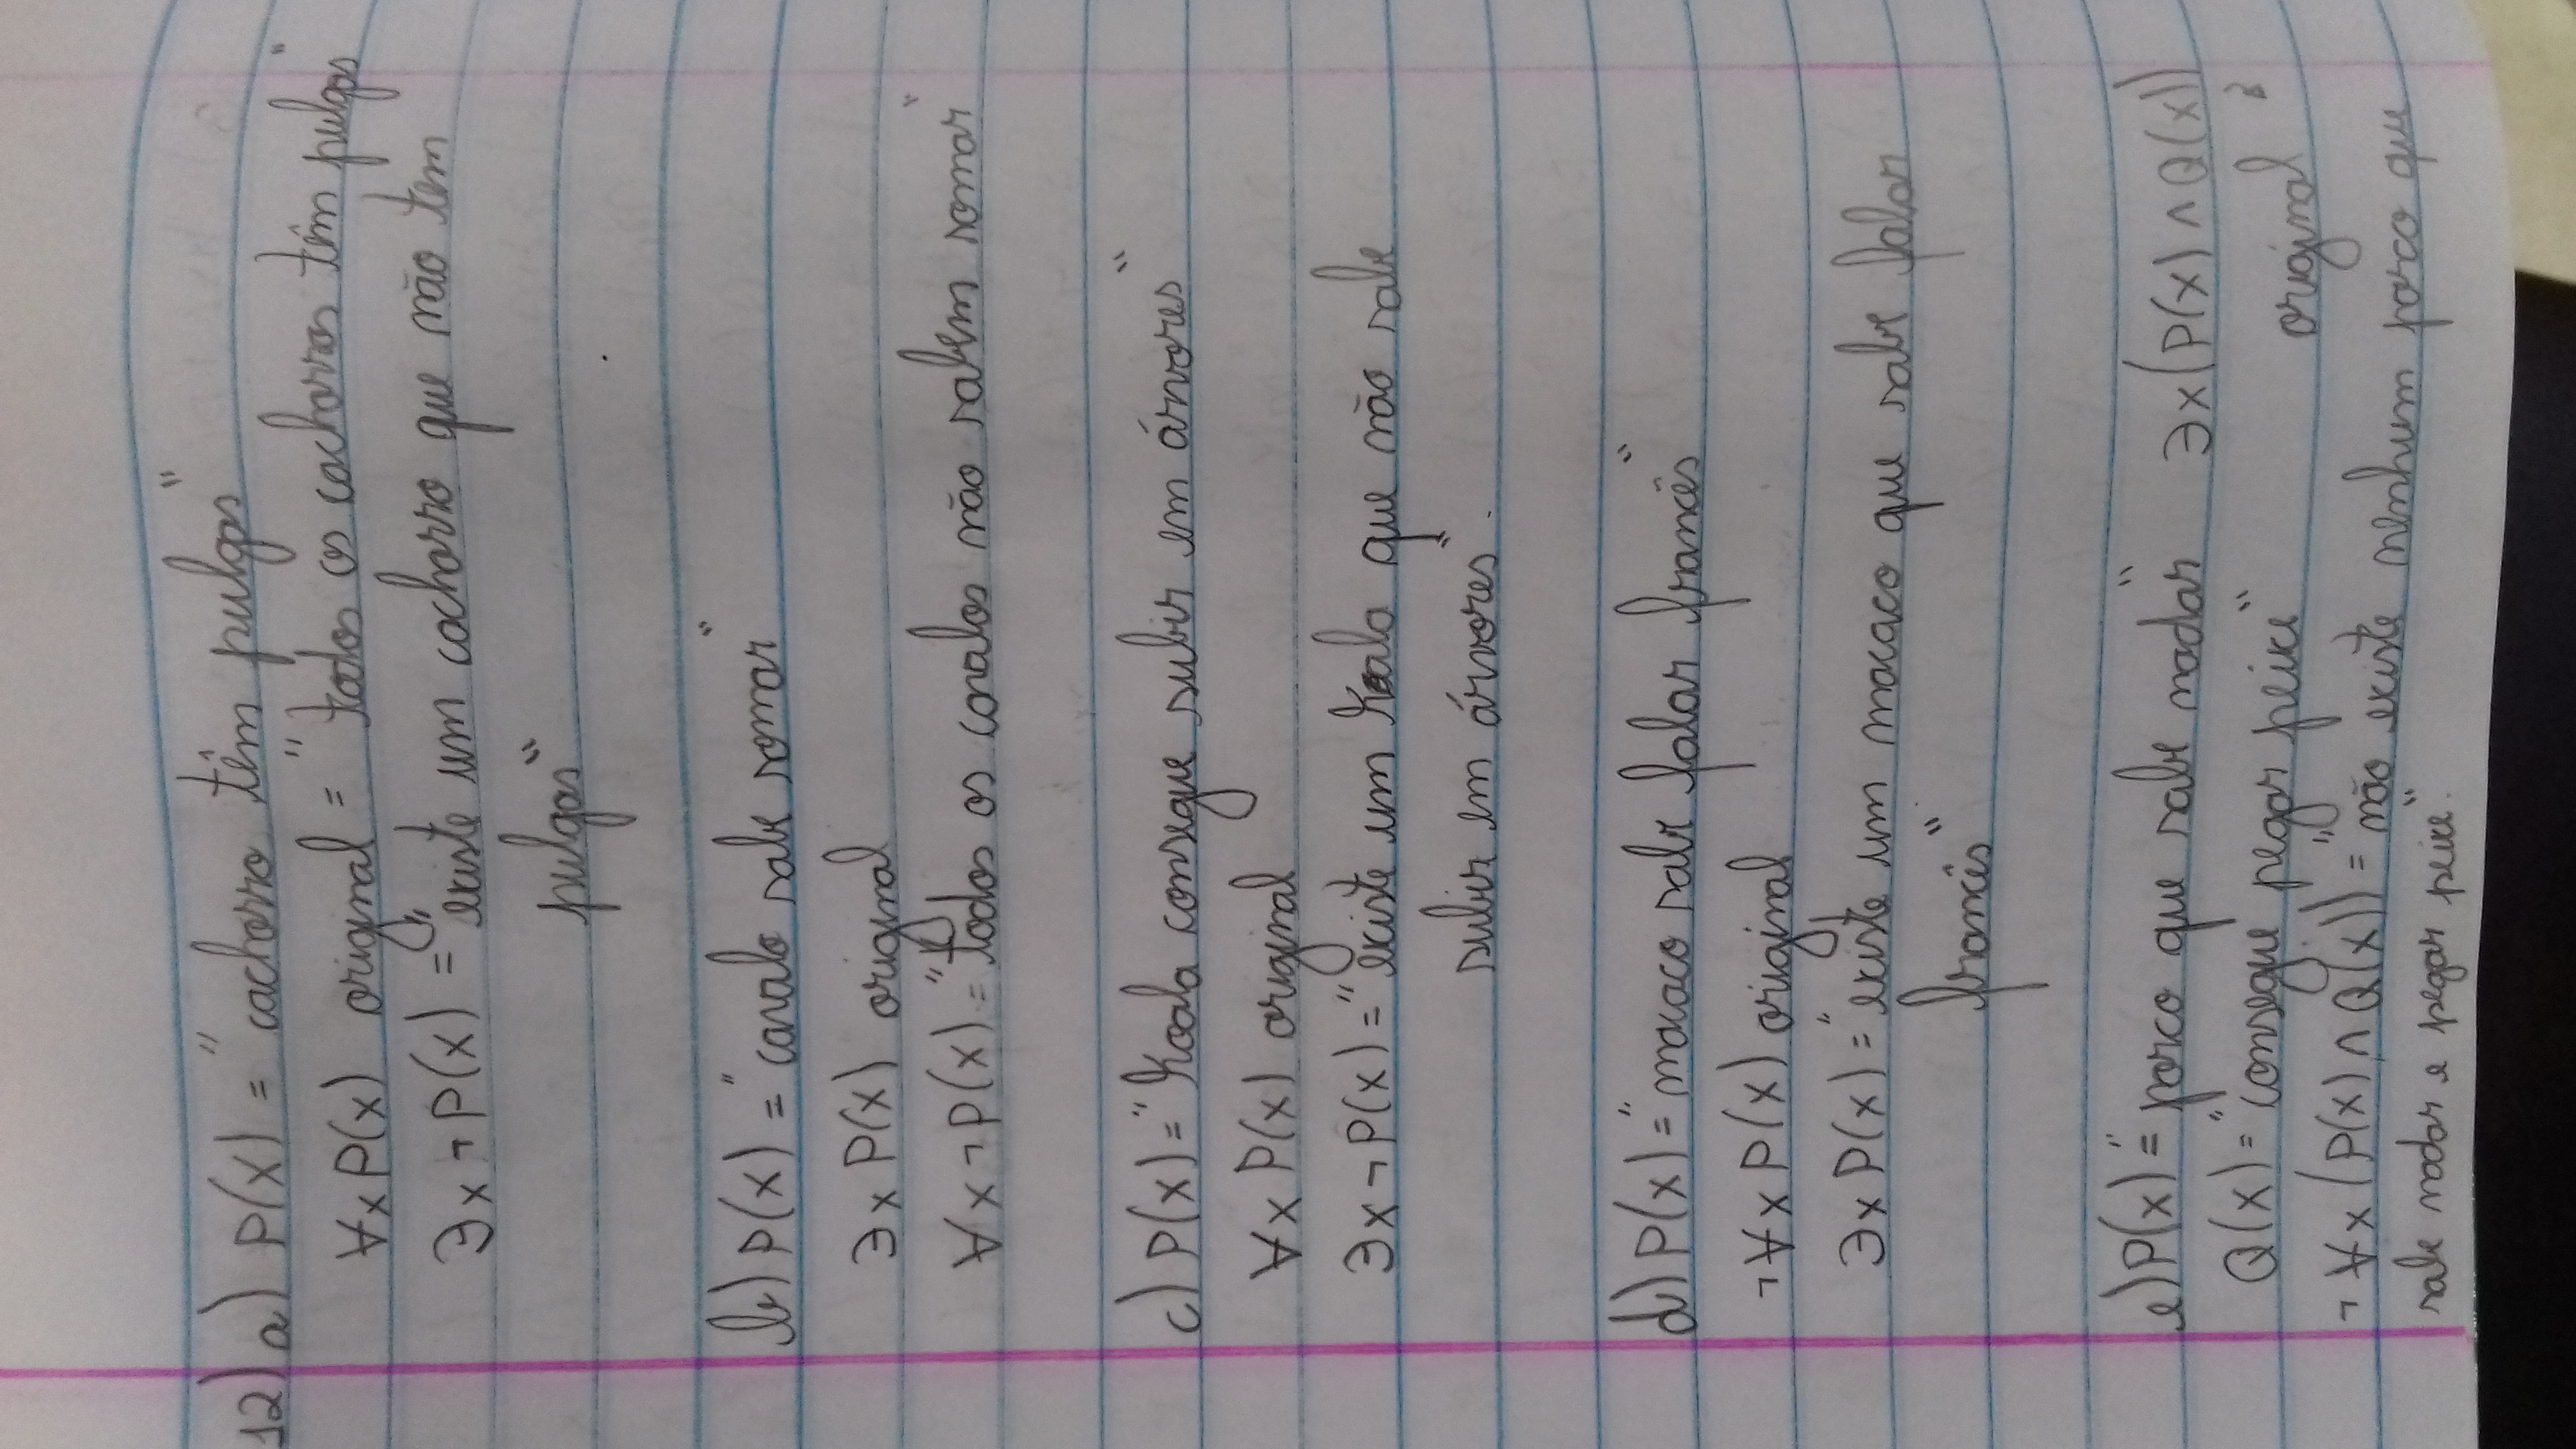 12) a) P(x) = "cachorro têm pulgas"
∀x P(x) original = "todos os cachorros têm pulgas"
∃x ¬P(x) = "existe um cachorro que não tem
pulgas"
b) P(x) = "cavalo sabe somar"
∃x P(x) original
∀x ¬P(x) = "todos os cavalos não sabem somar"
c) P(x) = "Koala consegue subir em árvores"
∀x P(x) original
∃x ¬P(x) = "existe um Koala que não sabe
subir em árvores".
d) P(x) = "macaco sabe falar francês"
¬∀x P(x) original
∃x P(x) = "existe um macaco que sabe falar
francês"
e) P(x) = "porco que sabe nadar" ∃x(P(x) ∧ Q(x))
Q(x) = "consegue pegar peixe" original
¬∀x (P(x) ∧ Q(x)) = "não existe nenhum porco que
sabe nadar e pegar peixe".